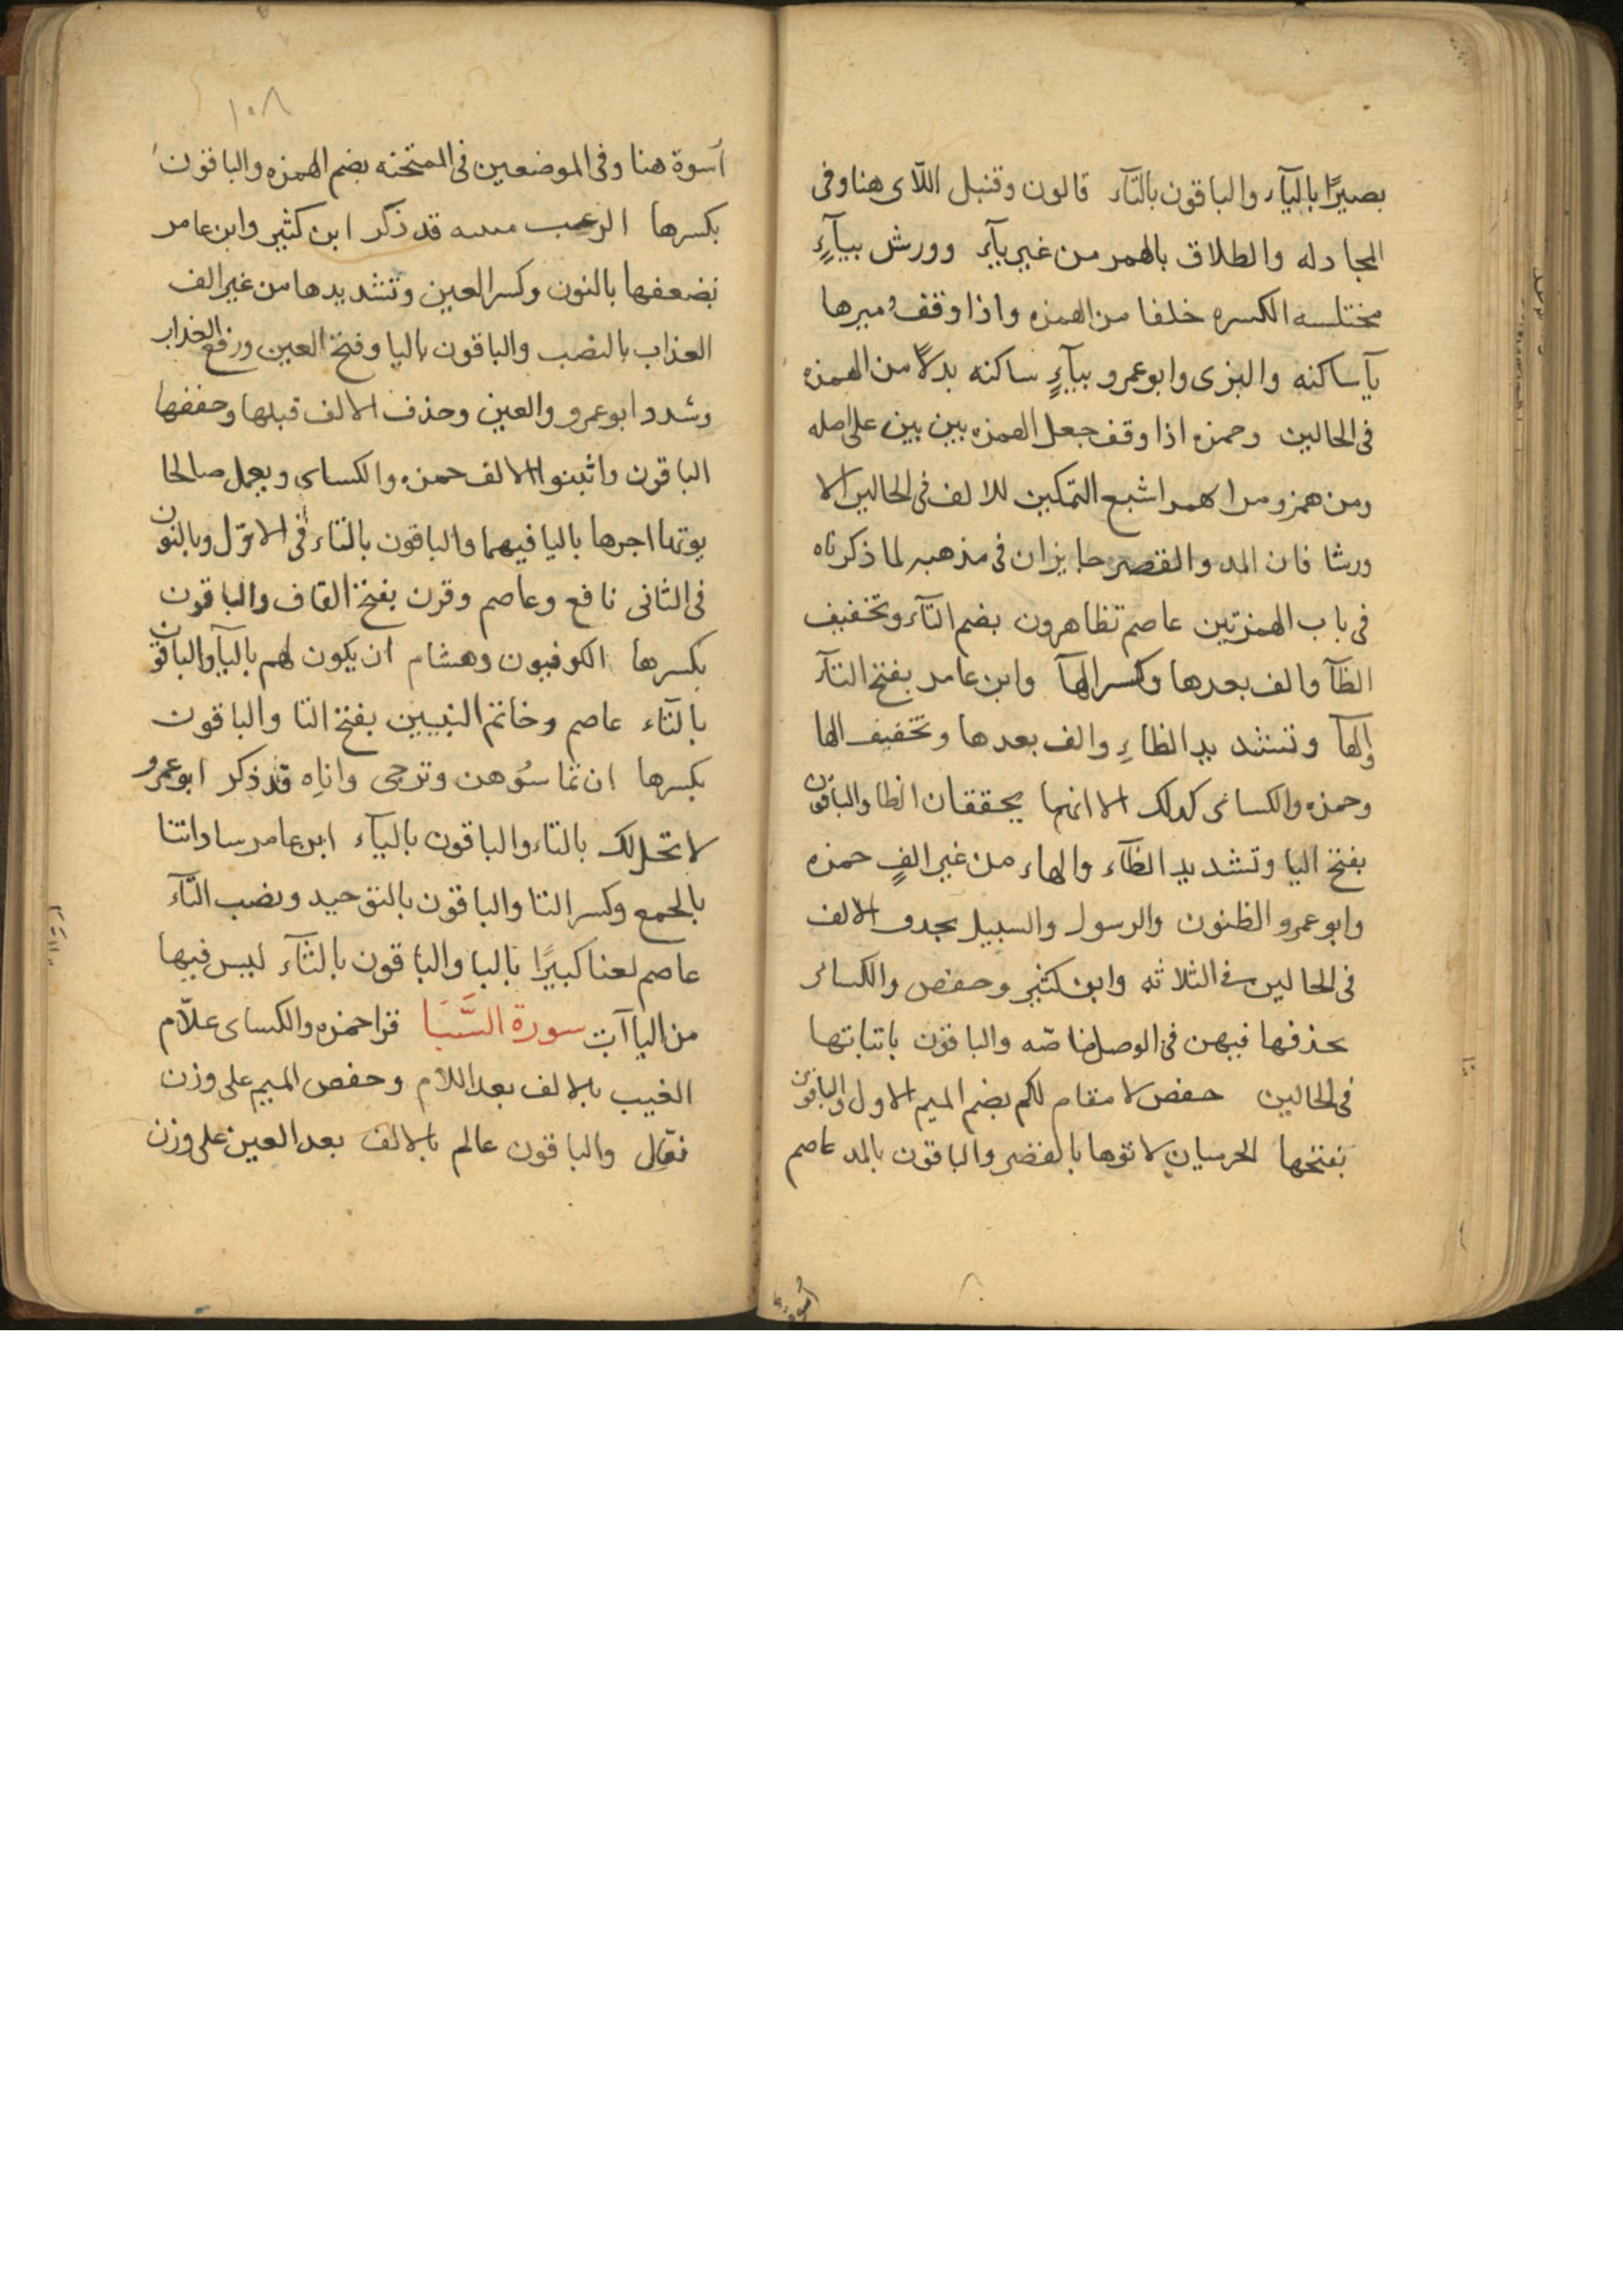 بصيرًا باليآء والباقون بالتآء قالون وقنبل اللآى هنا وفى
المجادله والطلاق بالهمز من غير يآء وورش بيآءٍ
مختلسه الكسره خلفا من الهمزه واذا وقف صيرها
يآ ساكنه والبزى وابو عمرو بيآءٍ ساكنه بدلاً من الهمزه
فى الحالين وحمزه اذا وقف جعل الهمزه بين بين على اصله
ومن همز ومن لا همز اشبع التمكين للالف فى الحالين الا
ورشا فان المد والقصر جايزان فى مذهبه لما ذكرناه
فى باب الهمزتين عاصم تظاهرون بضم التآء وتخفيف
الظآ والف بعدها وكسر الهآ وابن عامر بفتح التآء
والهآ وتشديد الظاءِ والف بعدها وتخفيف الها
وحمزه والكساى كدلك الا انهما يخففان الظا والباقون
بفتح اليا وتشديد الظآء والهاء من غير الفٍ حمزه
وابو عمرو الظنون والرسول والسبيل بحدف الالف
فى الحالين فى الثلاثه وابن كثير وحفص والكساى
بحذفها فيهن فى الوصل خاصّه والباقون باثباتها
فى الحالين حفص لا مقام لكم بضم الميم الاول والباقون
بفتحها الحرميان لاتوها بالقصر والباقون بالمد عاصم
اسوة
١٠٨
اُسوة هنا وفى الموضعين فى الممتحنه بضم الهمزه والباقون
بكسرها الرعب قد ذكر ابن كثير وابن عامر
نضعفها بالنون وكسر العين وتشديدها من غير الف
العذاب بالنصب والباقون باليا وفتح العين ورفع العذاب
وشدد ابو عمرو والعين وحذف الالف قبلها وخففها
الباقون واثبتوا الالف حمزه والكساى ويعمل صالحا
يوتها اجرها باليا فيهما والباقون بالتاء فى الاوّل وبالنون
فى الثانى نافع وعاصم وقرن بفتح القاف والباقون
بكسرها الكوفيون وهشام ان يكون لهم باليآ والباقون
بالتآء عاصم وخاتم النبيين بفتح التا والباقون
بكسرها ان تماسُوهن وترجى واناِه قد ذكر ابو عمرو
لا تحل لك بالتاء والباقون باليآء ابن عامر ساداتنا
بالجمع وكسر التا والباقون بالتوحيد ونصب التآء
عاصم لعنا كبيرًا بالبا والباقون بالثآء ليس فيها
من الياآت سورة السَّبَا قرا حمزه والكساى علاّم
الغيب بالالف بعد اللام وخفص الميم على وزن
فعّال والباقون عالم بالالف بعد العين على وزن